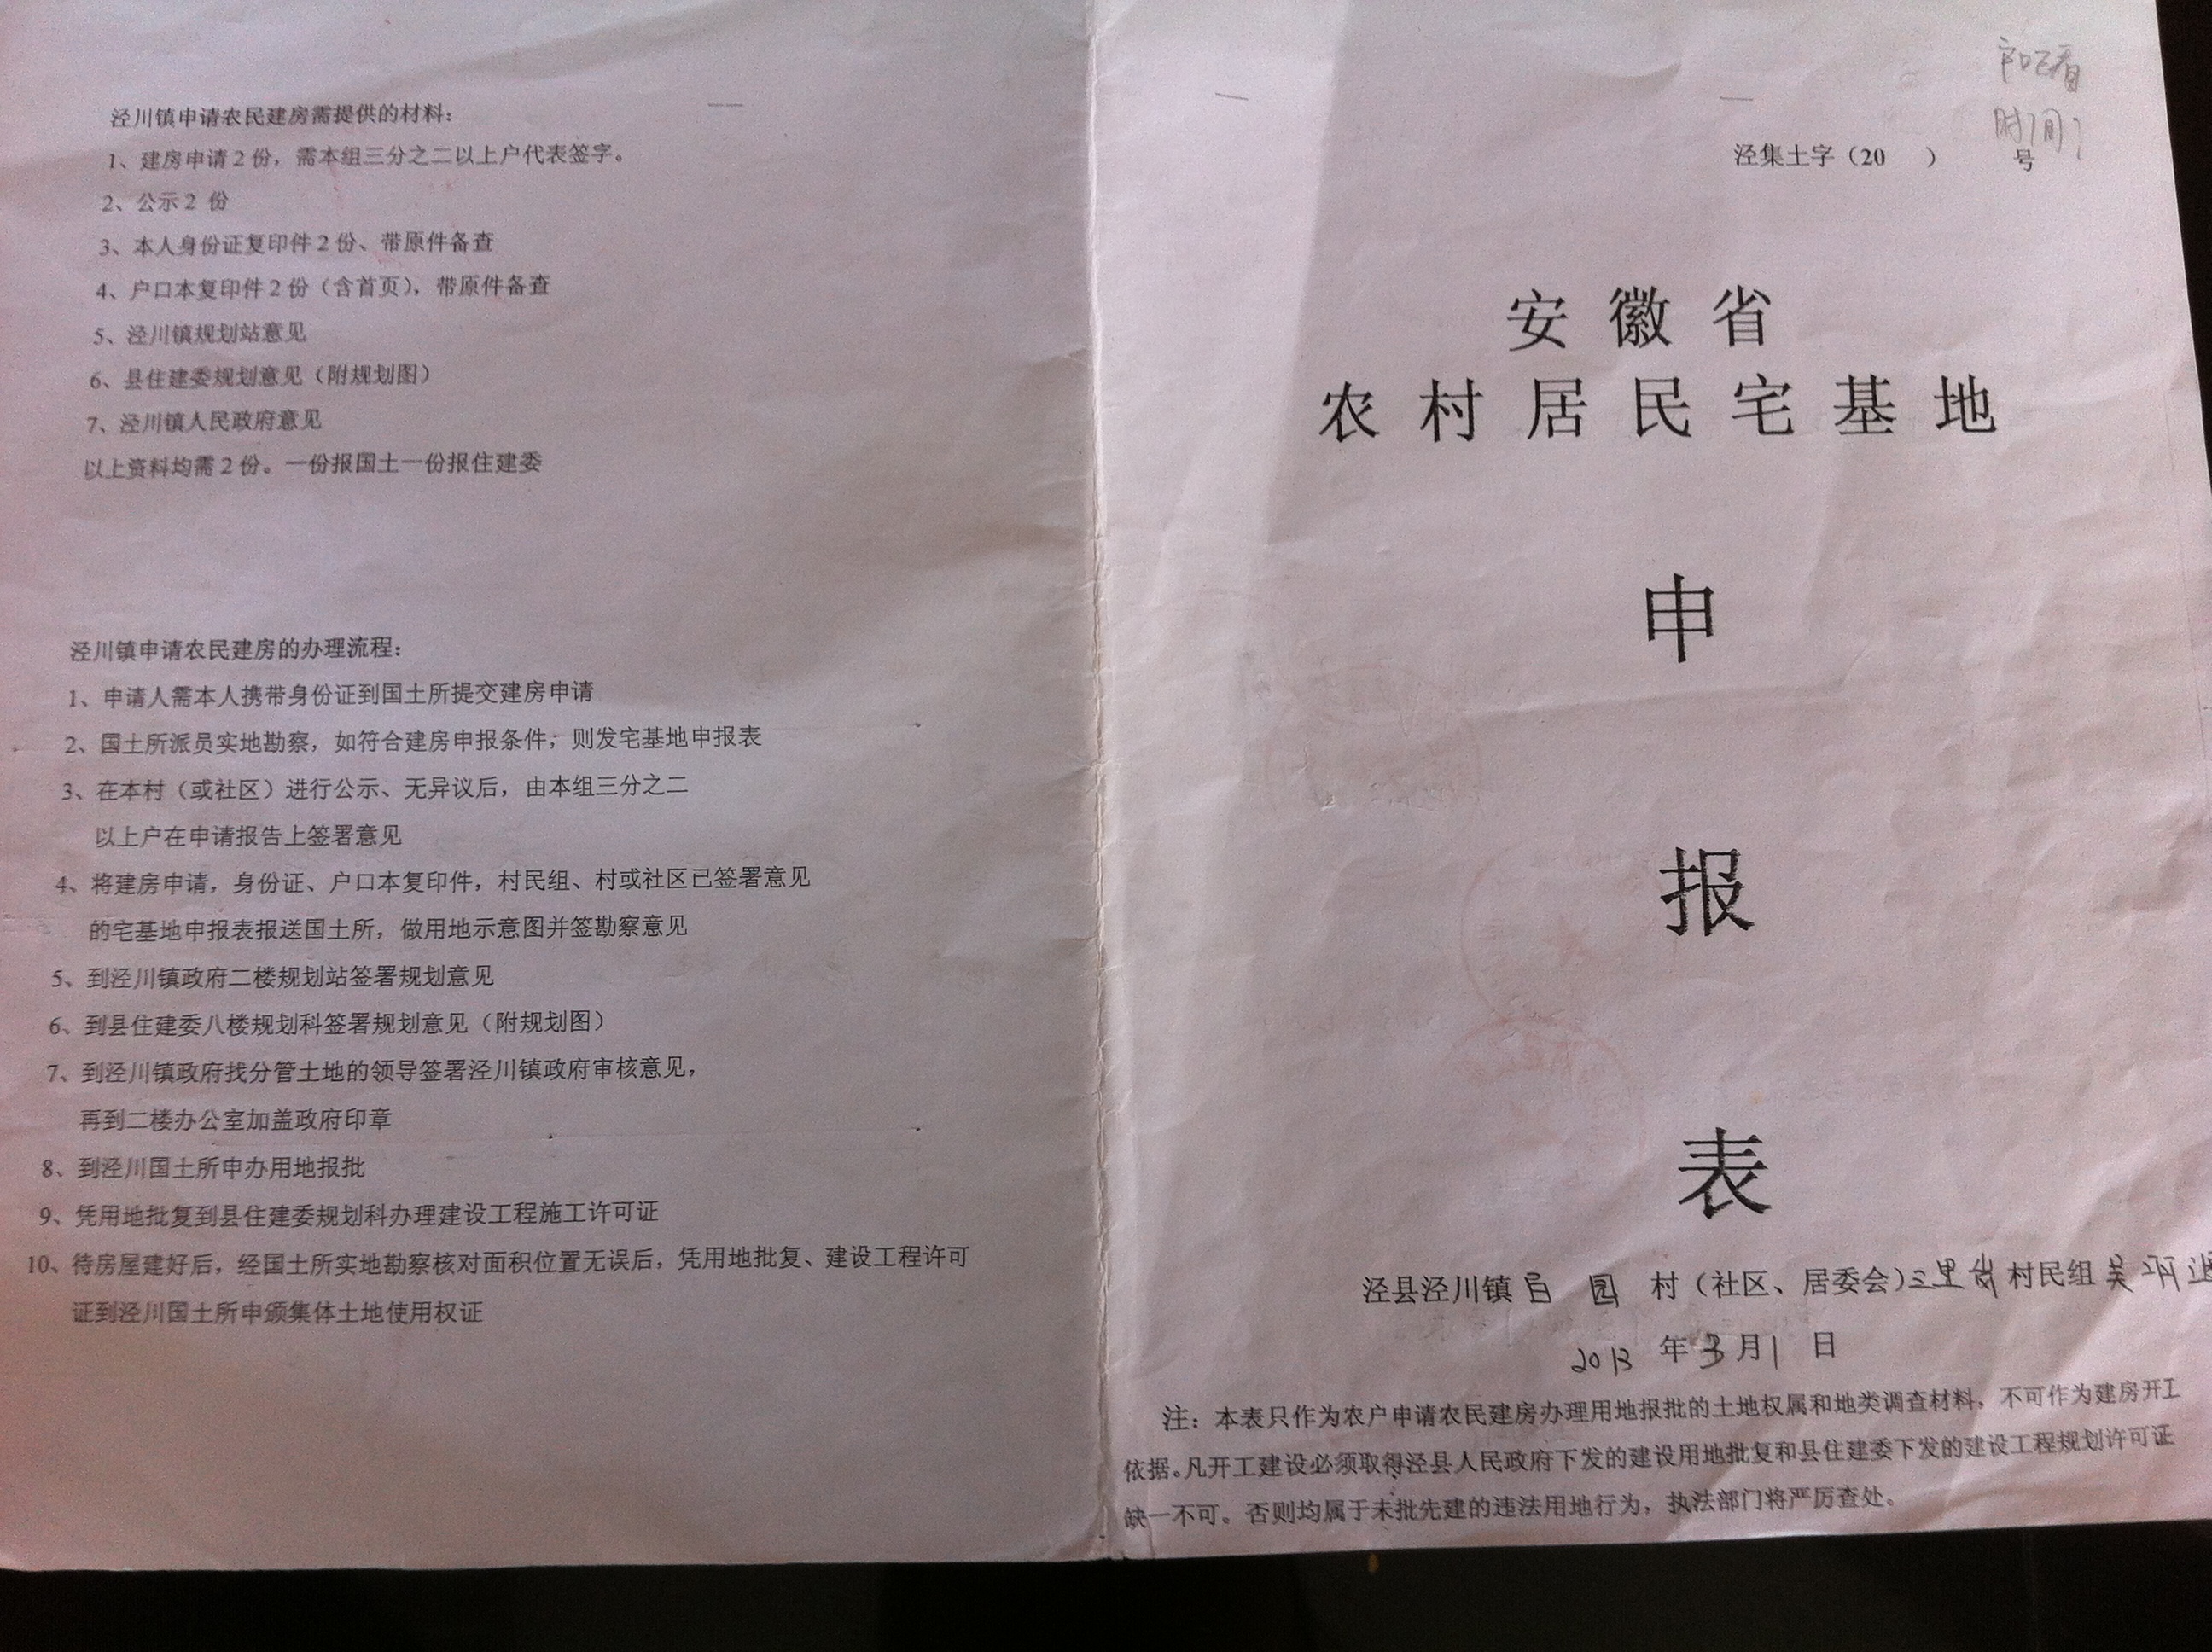 泾川镇申请农民建房需提供的材料：
1、建房申请2份，需本组三分之二以上户代表签字。
2、公示2 份
3、本人身份证复印件2份、带原件备查
4、户口本复印件2份（含首页），带原件备查
5、泾川镇规划站意见
6、县住建委规划意见（附规划图）
7、泾川镇人民政府意见
以上资料均需2份。一份报国土一份报住建委
泾川镇申请农民建房的办理流程：
1、申请人需本人携带身份证到国土所提交建房申请
2、国土所派员实地勘察，如符合建房申报条件，则发宅基地申报表
3、在本村（或社区）进行公示、无异议后，由本组三分之二
以上户在申请报告上签署意见
4、将建房申请，身份证、户口本复印件，村民组、村或社区已签署意见
的宅基地申报表报送国土所，做用地示意图并签勘察意见
5、到泾川镇政府二楼规划站签署规划意见
6、到县住建委八楼规划科签署规划意见（附规划图）
7、到泾川镇政府找分管土地的领导签署泾川镇政府审核意见，
再到二楼办公室加盖政府印章
8、到泾川国土所申办用地报批
9、凭用地批复到县住建委规划科办理建设工程施工许可证
10、待房屋建好后，经国土所实地勘察核对面积位置无误后，凭用地批复、建设工程许可
证到泾川国土所申颁集体土地使用权证
时间
泾集土字（20 ） 号
安徽省
农村居民宅基地
申
报
表
泾县泾川镇 园 村（社区、居委会）三里 村民组 吴
2013 年 3 月 1 日
注：本表只作为农户申请农民建房办理用地报批的土地权属和地类调查材料，不可作为建房开工
依据。凡开工建设必须取得泾县人民政府下发的建设用地批复和县住建委下发的建设工程规划许可证
缺一不可。否则均属于未批先建的违法用地行为，执法部门将严厉查处。